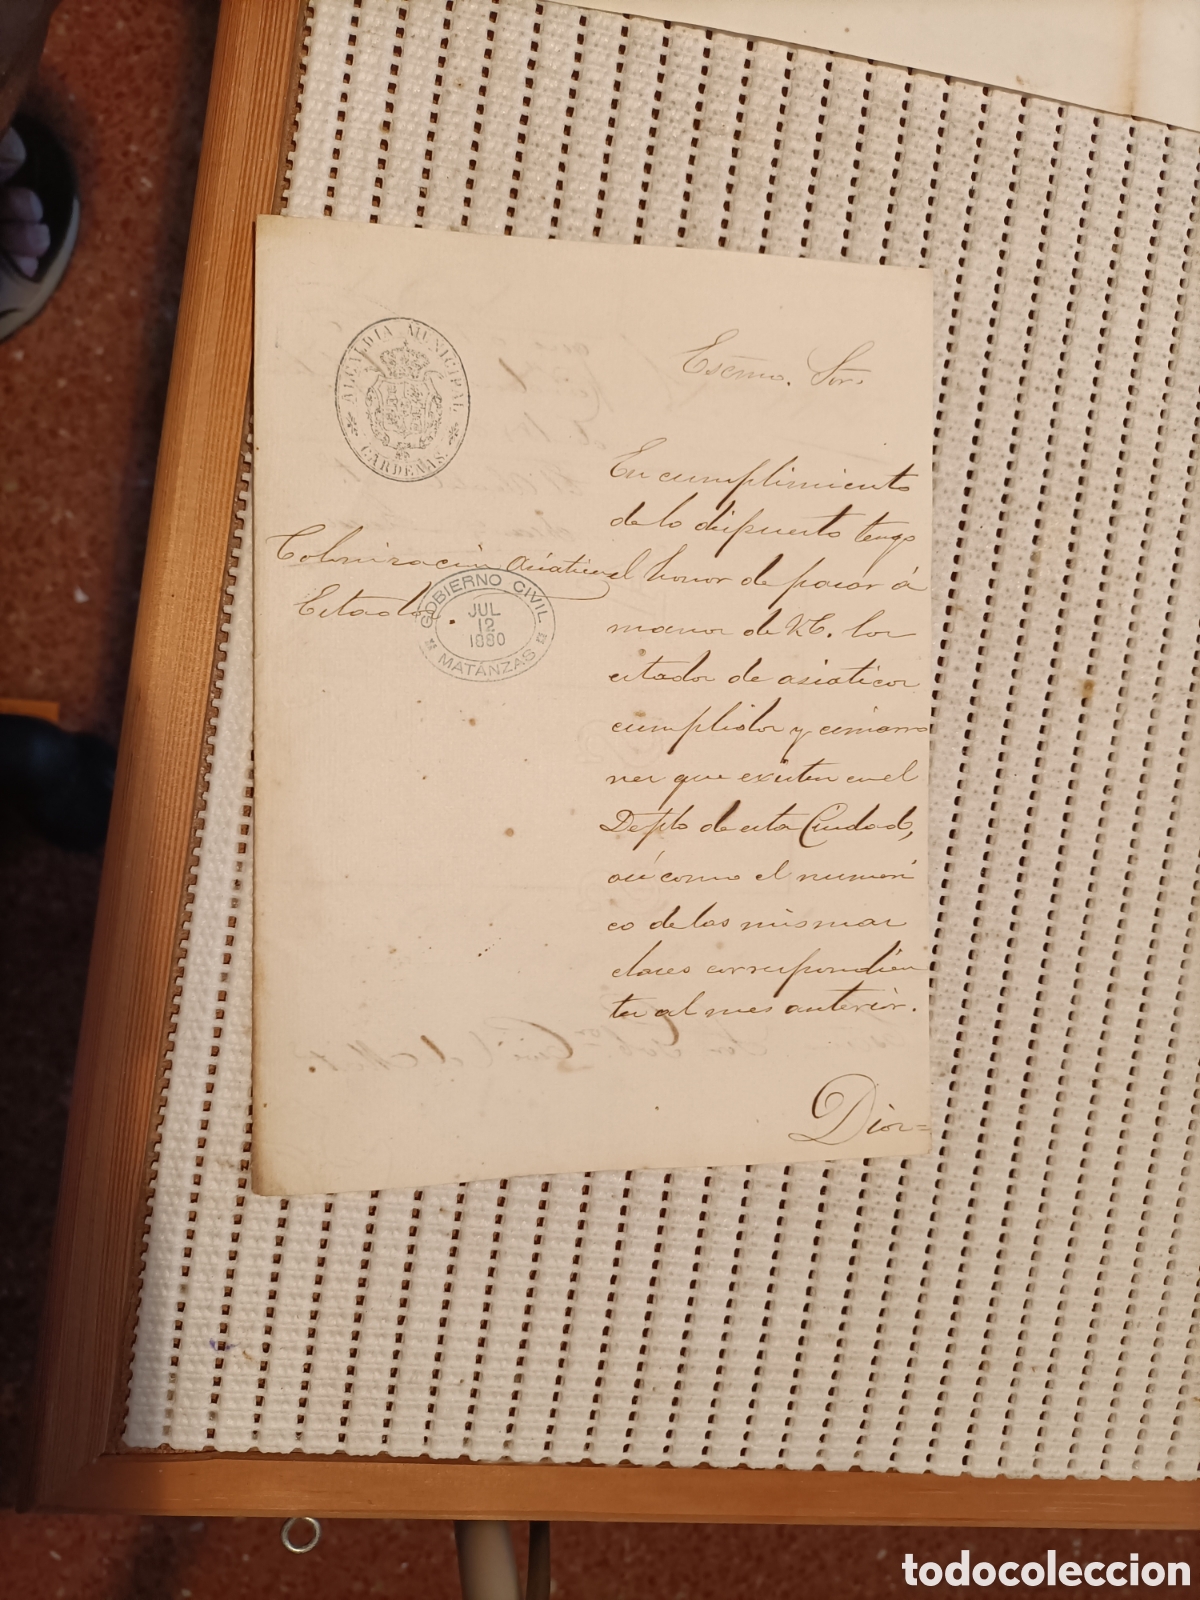 ALCALDIA MUNICIPAL
CARDENAS.
Escmo. Sor.
Colonizacion asiatica
Estados.
GOBIERNO CIVIL
JUL
12
1880
MATANZAS
En cumplimiento
de lo dispuesto tengo
el honor de pasar á
manos de V.E. los
estados de asiaticos
cumplidos y cimarro
nes que existen en el
Depto de esta Ciudad,
así como el numéri
co de las mismas
clases correspondien
te al mes anterior.
Dios=
todocoleccion